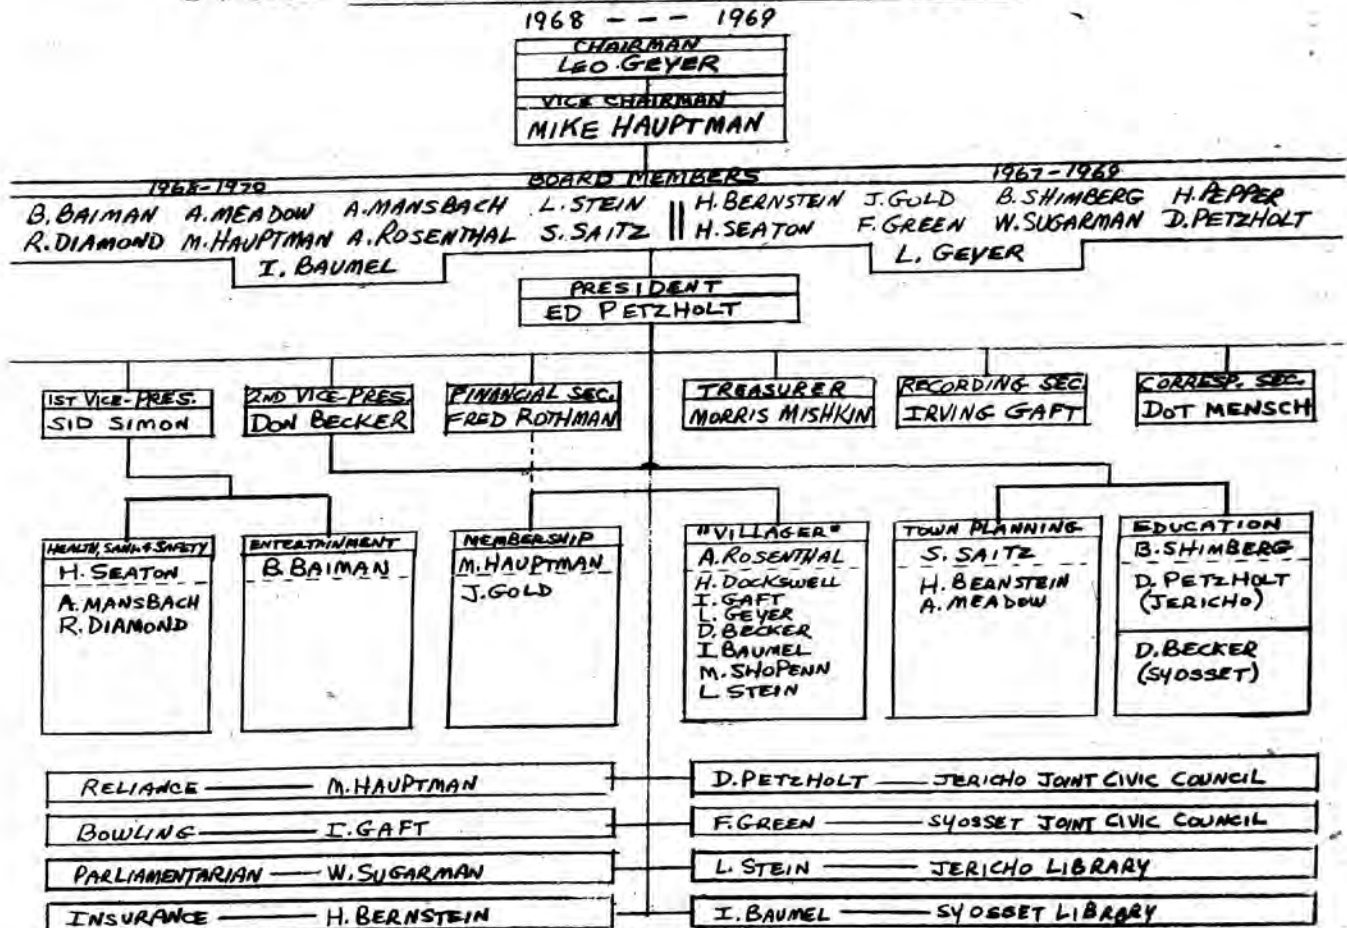 1968 - - - 1969
CHAIRMAN
LEO GEYER
VICE CHAIRMAN
MIKE HAUPTMAN
BOARD MEMBERS
1968-1970
B. BAIMAN A. MEADOW A. MANSBACH L. STEIN
R. DIAMOND M. HAUPTMAN A. ROSENTHAL S. SAITZ
I. BAUMEL
1967-1969
H. BERNSTEIN J. GOLD B. SHIMBERG H. PEPPER
H. SEATON F. GREEN W. SUGARMAN D. PETZHOLT
L. GEYER
PRESIDENT
ED PETZHOLT
1ST VICE-PRES.
SID SIMON
2ND VICE-PRES.
DON BECKER
FINANCIAL SEC.
FRED ROTHMAN
TREASURER
MORRIS MISHKIN
RECORDING SEC.
IRVING GAFT
CORRESP. SEC.
DOT MENSCH
HEALTH, SANI. & SAFETY
H. SEATON
A. MANSBACH
R. DIAMOND
ENTERTAINMENT
B. BAIMAN
MEMBERSHIP
M. HAUPTMAN
J. GOLD
"VILLAGER"
A. ROSENTHAL
H. DOCKSWELL
I. GAFT
L. GEYER
D. BECKER
I. BAUMEL
M. SHOPENN
L. STEIN
TOWN PLANNING
S. SAITZ
H. BERNSTEIN
A. MEADOW
EDUCATION
B. SHIMBERG
D. PETZHOLT
(JERICHO)
D. BECKER
(SYOSSET)
RELIANCE — M. HAUPTMAN
D. PETZHOLT — JERICHO JOINT CIVIC COUNCIL
BOWLING — I. GAFT
F. GREEN — SYOSSET JOINT CIVIC COUNCIL
PARLIAMENTARIAN — W. SUGARMAN
L. STEIN — JERICHO LIBRARY
INSURANCE — H. BERNSTEIN
I. BAUMEL — SYOSSET LIBRARY